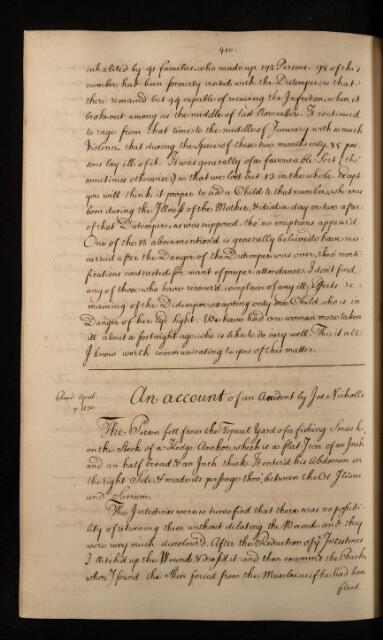 410.
inhabited by 91 families, who made up 192 Persons. 98 of this
number had been formerly visited with the Distemper, so that
there remained but 94 capable of receiving the Infection, when it
broke out among us the middle of last November. It continued
to rage from that time to the middle of January with so much
Violence that during the space of these two months only 85 per
sons lay ill of it. It was generally of a favourable Sort (tho'
sometimes otherwise) so that we lost but 13 in the whole. Except
you will think it proper to add a Child to that number, who was
born during the Illness of the Mother, & died a day or two after
of that Distemper, as was supposed, tho' no eruptions appear'd.
One of the 13 abovemention'd is generally believed to have mis
carried after the Danger of the Distemper was over, thro' morti
fications contracted for want of proper attendance. I don't find
any of those who have recover'd complain of any ill Effects re
maining of the Distemper, excepting only one Child, who is in
Danger of her Eye Sight. We have had one woman more taken
ill about a fortnight ago, who is like to do very well. This is all
I know worth communicating to you of this matter.
Read April
9. 1730
An account of an Accident by Jos: Nicholls
The Person fell from the Topsail Yard of a fishing Smack,
on the Stock of a Kedge Anchor, which is a flat Iron of an Inch
and an half broad & an Inch thick. It enter'd his Abdomen on
the right Side, & made its passage thro' between the Os Ilium
and Sacrum.
The Intestines were so tumefied that there was no possibi-
lity of returning them without dilating the Wound and they
were very much discolour'd. After the Reduction of ye Intestines
I stitch'd up the Wound & dress'd it and then examin'd the Back,
where I found the Skin forced from the Muscles as if he had been
flead